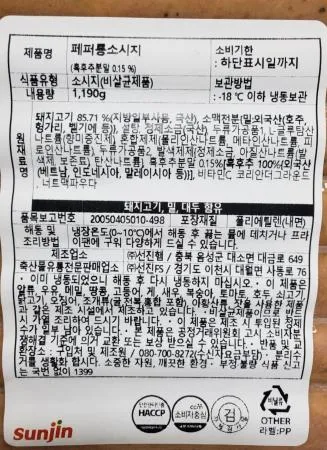 제품명 페퍼롱소시지 소비기한
(흑후추분말 0.15 %) : 하단표시일까지
식품유형 소시지(비살균제품) 보관방법
내용량 1,190g : -18℃ 이하 냉동보관
원재료명
돼지고기 85.71 %(지방일부사용, 국산), 소맥전분(밀:외국산(호주,
헝가리, 벨기에 등)), 설탕, 정제소금(국산), 두류가공품1, L-글루탐산
나트륨(향미증진제), 혼합제제(폴리인산나트륨, 메타인산나트륨, 피
로인산나트륨), 두류가공품2, 발색제제(정제소금, 아질산나트륨(발
색제, 보존료), 탄산나트륨), 흑후추분말 0.15%(흑후추 100%(외국산
(베트남, 인도네시아, 말레이시아 등))), 비타민C, 코리안더그라운드
, 너트맥파우다
돼지고기, 밀, 대두 함유
품목보고번호 20050405010-498 포장재질 폴리에틸렌(내면)
해동 및 조리방법 냉장온도(0~10℃)에서 해동 후 끓는 물에 데치거나 프라
이팬에 구워 다양하게 드실 수 있습니다.
제조업소 ㈜선진햄 / 충북 음성군 대소면 대금로 649
축산물유통전문판매업소 ㈜선진FS / 경기도 이천시 대월면 사동로 76
· 이미 냉동되었으니 해동 후 다시 냉동하지 마십시오. · 이 제품은
알류, 우유, 메밀, 땅콩, 고등어, 게, 새우, 복숭아, 토마토, 호두, 쇠고기,
닭고기, 오징어, 조개류(굴,전복,홍합 포함), 아황산류, 잣을 사용한 제품
과 같은 제조 시설에서 제조하고 있습니다. · 비살균제품이므로 반드
시 가열 조리하여 드시기 바랍니다.
수가 일부 남아 있습니다. · 본 제품은 공정거래위원회 고시 소비자분
쟁해결 기준에 의거 교환 또는 보상 받으실 수 있습니다. · 반품 및 교
환장소 : 구입처 및 제조원 / 080-700-8272(수신자요금부담) · 분리수
거를 생활화합시다. 소중한 자원, 깨끗한 환경 · 부정·불량 식품 신고
는 국번 없이 1399
sunjin
안전관리인증
HACCP
소비자중심
검
비닐류
OTHER
라벨:PP